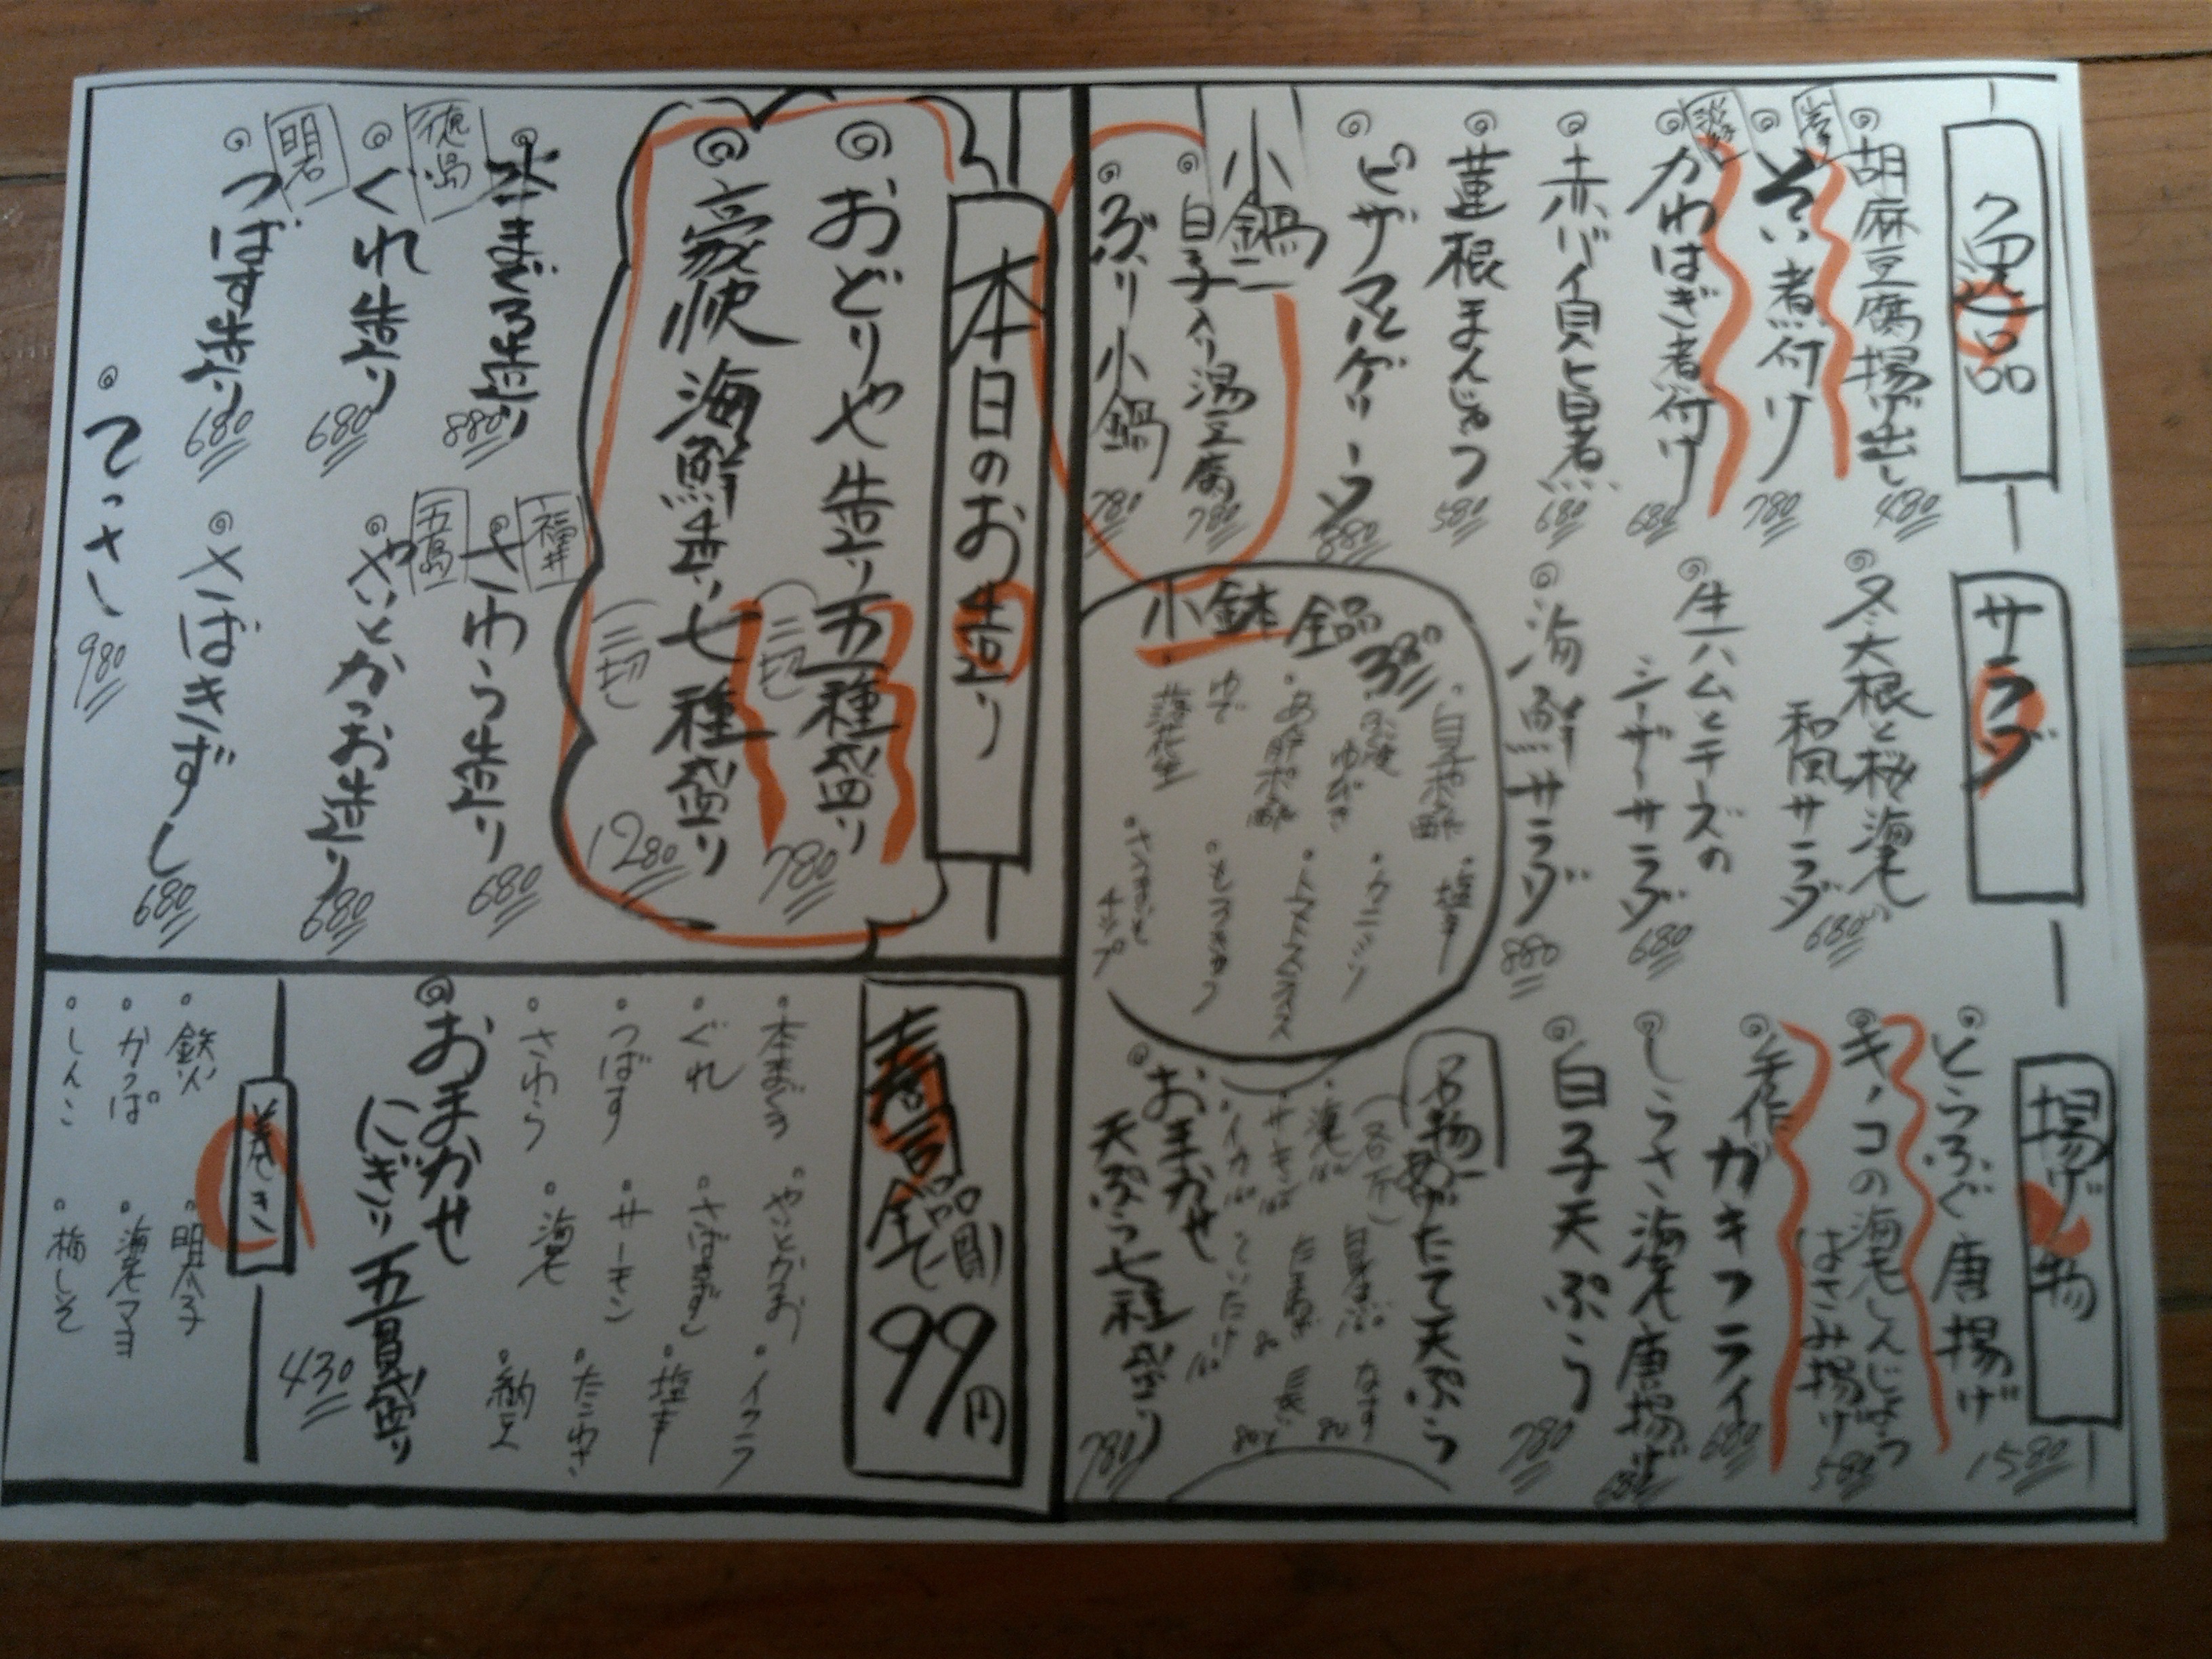 今逸品
胡麻豆腐揚げ出し 480
そい煮付け 780
かわはぎ煮付け 680
赤バイ貝旨煮 680
蓮根まんじゅう 580
ピザマルゲリータ 880
小鍋
白子入り湯豆腐 780
ぶり小鍋 780
サラダ
冬大根と桜海老
和風サラダ 680
生ハムとチーズの
シーザーサラダ 680
海鮮サラダ 880
小鉢 全品 380
白子ポン酢
塩辛
ゆびき
カニミソ
あん肝ポン酢
トマトスライス
ゆで
落花生
もろきゅう
さつまいも
チップ
揚げ物
とうふぐ唐揚げ 1580
キノコの海老しんじょう
はさみ揚げ 580
手作ガキフライ 680
しらさ海老唐揚げ 680
白子天ぷら 780
名物
あげたて天ぷら
海老 160
なす 80
サーモン 160
たまねぎ 80
長いも 80
イカ 160
しいたけ 160
おまかせ
天ぷら七種盛り 780
本日のお造り
おどりや造り五種盛り 780
二切
豪快海鮮造り七種盛り 1280
三切
本まぐろ造り 880
福井
さわら造り 680
徳島
ぐれ造り 680
五島
やいとかつお造り 680
明石
つばす造り 680
さばきずし 680
てっさ 980
寿司 全品一貫 99円
本まぐろ
やいとかつお
イクラ
ぐれ
さばきずし
塩辛
つばす
サーモン
たこわさ
さわら
海老
納豆
おまかせ
にぎり五貫盛り
430
巻き
鉄火
明太子
かっぱ
海老マヨ
しんこ
梅しそ